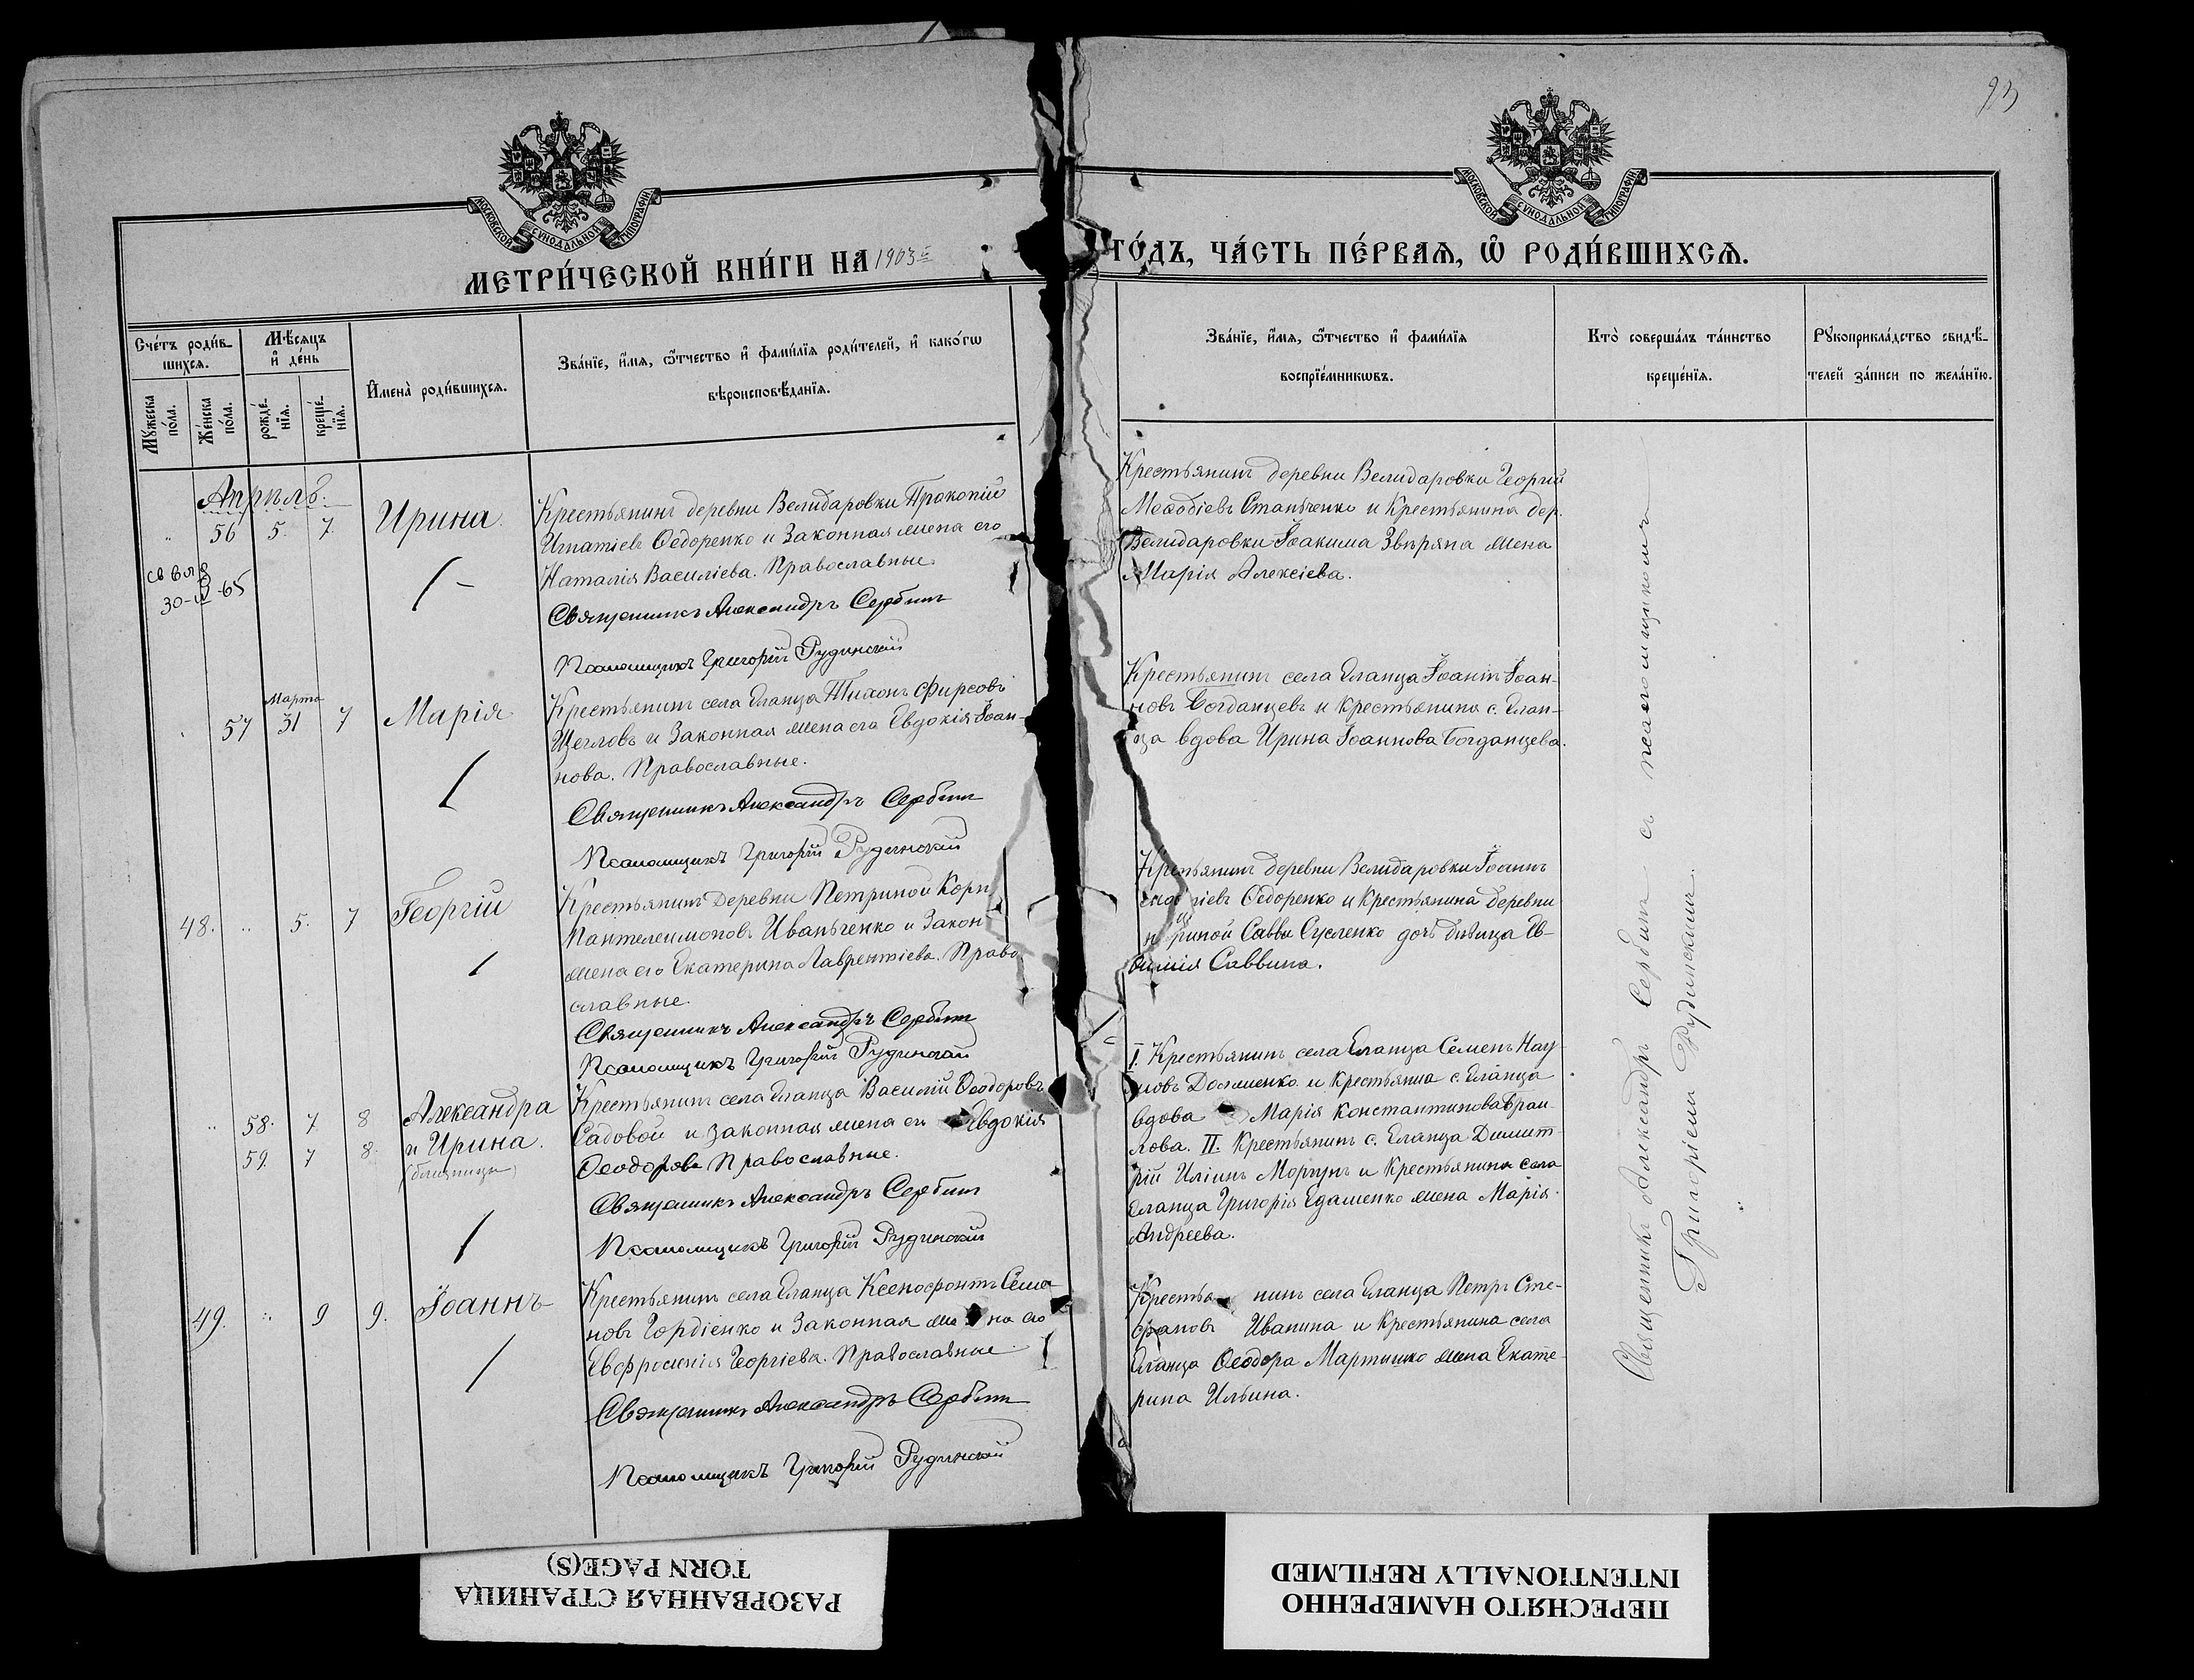 93
МОСКОВСКОЙ СѴНОДАЛЬНОЙ ТИПОГРАФІИ
МОСКОВСКОЙ СѴНОДАЛЬНОЙ ТИПОГРАФІИ
МЕТРИ́ЧЕСКОЙ КНИ́ГИ НА 1903 ГО́ДЪ, ЧА́СТЬ ПЕ́РВАѦ, Ѽ РОДИ́ВШИХСѦ.
Сче́тъ роди́в-
шихсѧ.
Мꙋ́жеска по́ла.
Же́нска по́ла.
Мѣ́сѧцъ
и҆ де́нь
рожде́-
нїѧ.
креще́-
нїѧ.
И҆мена̀ роди́вшихсѧ.
Зва́нїе, и҆́мѧ, ѻ҆́тчество и҆ фами́лїѧ роди́телей, и҆ како́гѡ
вѣроисповѣ́данїѧ.
Зва́нїе, и҆́мѧ, ѻ҆́тчество и҆ фами́лїѧ
воспрїе́мникѡвъ.
Кто̀ соверша́лъ та́инство
креще́нїѧ.
Рꙋкоприкла́дство свидѣ́-
телей за́писи по жела́нїю.
Апрѣль.
56 5. 7. Ирина.
30-IV-65
Крестьянинъ деревни Велидаровки Прокопій
Игнатіевъ Ѳедоренко и законная жена его
Наталія Василіева. Православные.
Священникъ Александръ Сербинъ
Псаломщикъ Григорій Рудинскій
Крестьянинъ деревни Велидаровки Георгій
Меѳодіевъ Станьченко и крестьянина дер.
Велидаровки Іоакима Звѣряна жена
Марія Алексіева.
57 Марта 31 7 Марія
Крестьянинъ села Еланца Тихонъ Фирсовъ
Щегловъ и законная жена его Евдокія Іоан-
нова. Православные.
Священникъ Александръ Сербинъ
Псаломщикъ Григорій Рудинскій
Крестьянинъ села Еланца Іоаннъ Іоан-
новъ Богданцевъ и крестьянина с. Елан-
ца вдова Ирина Іоаннова Богданцева.
48. 5. 7 Георгій
Крестьянинъ деревни Петриной Корн
Пантелеимоновъ Иваньченко и закон
жена его Екатерина Лаврентіева. Право
славные.
Священникъ Александръ Сербинъ
Псаломщикъ Григорій Рудинскій
Крестьянинъ деревни Велидаровки Іоаннъ
гіевъ Ѳедоренко и крестьянина деревни
риной Саввы Сусленко дочь дѣвица Ев-
Саввина.
58. 7 8 Александра
59. 7 8. и Ирина.
(близницы)
Крестьянинъ села Еланца Василій Ѳеодоровъ
Садовой и законная жена его Евдокія
Ѳеодорова Православные.
Священникъ Александръ Сербинъ
Псаломщикъ Григорій Рудинскій
I. Крестьянинъ села Еланца Семенъ Нау
мовъ Долженко и крестьянина с. Еланца
вдова Марія Константинова Вран-
лова. II. Крестьянинъ с. Еланца Димит-
рій Иліинъ Моргунъ и крестьянина села
Еланца Григорія Едаменко жена Марія
Андреева.
49. 9 9. Іоаннъ
Крестьянинъ села Еланца Ксенофонтъ Симо-
новъ Гордіенко и законная жена его
Евфросинія Георгіева. Православные
Священникъ Александръ Сербинъ
Псаломщикъ Григорій Рудинскій
Крестьянинъ села Еланца Петръ Сте-
фановъ Иванина и крестьянина села
Еланца Ѳеодора Мартишко жена Екате-
рина Ильина.
Священникъ Александръ Сербинъ съ псаломщикомъ
Григоріемъ Рудинскимъ.
РАЗОРВАННАЯ СТРАНИЦА
TORN PAGE(S)
ПЕРЕСНЯТО НАМЕРЕННО
INTENTIONALLY REFILMED